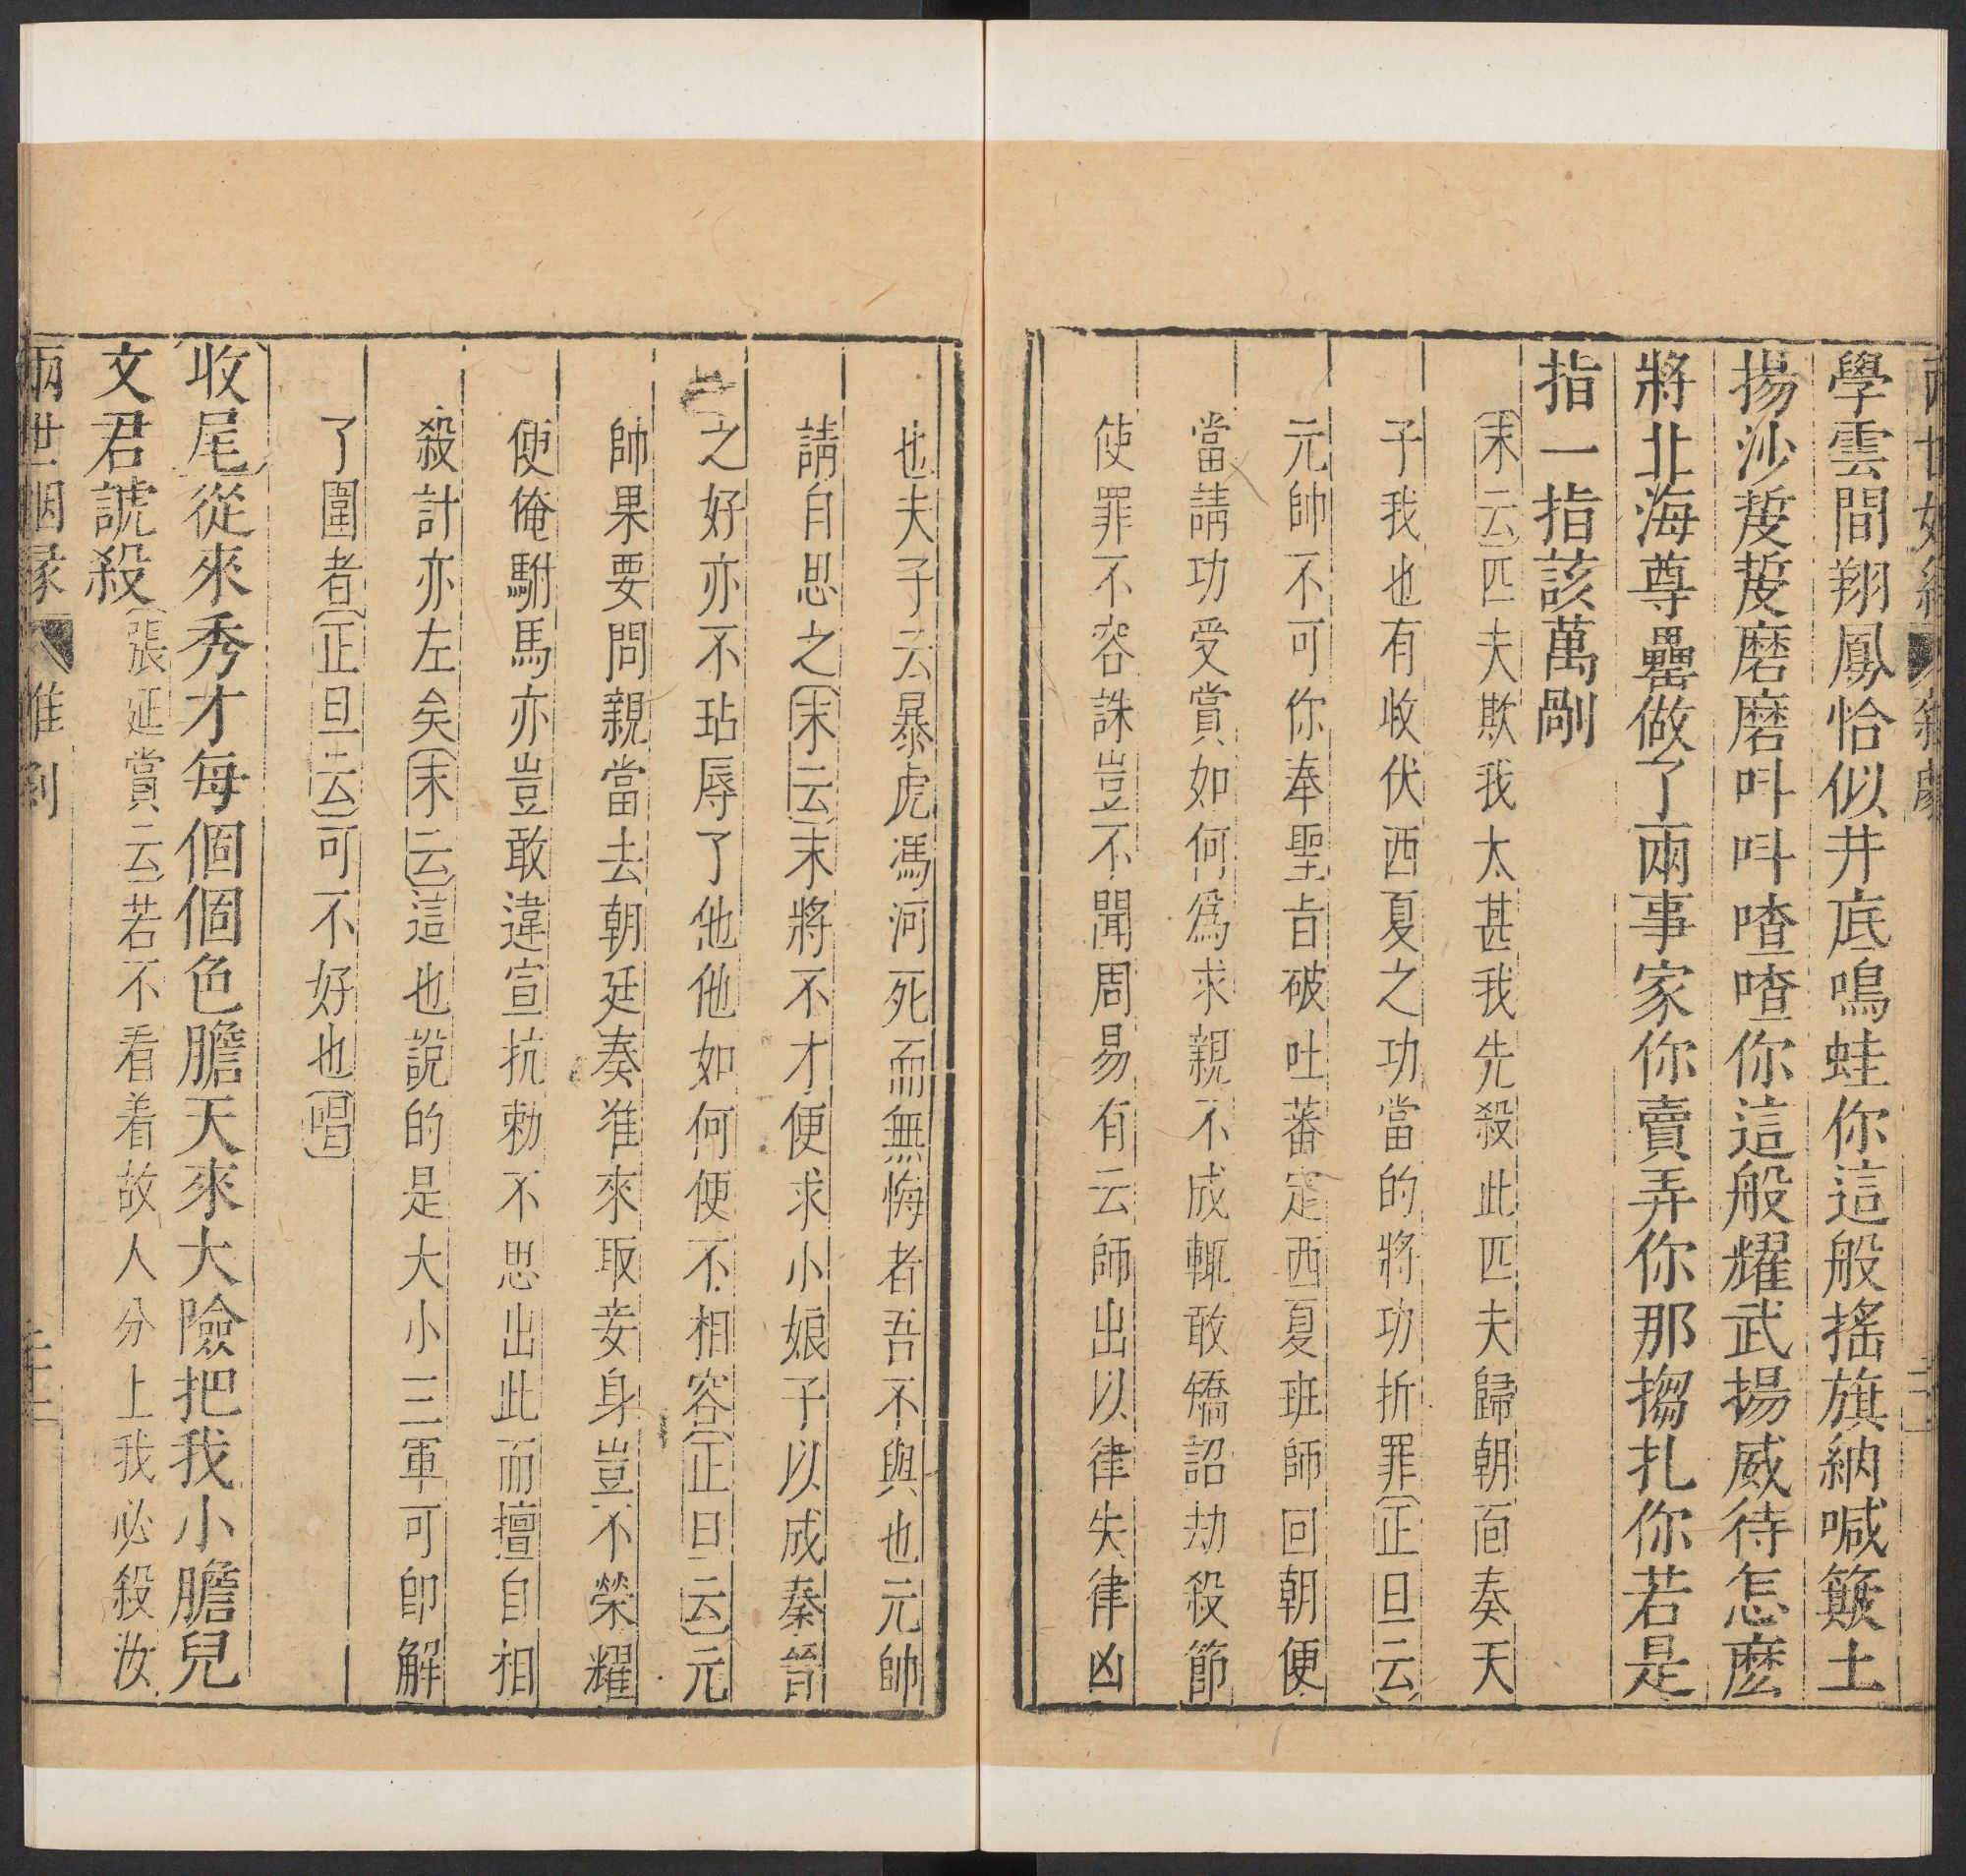 學雲間翔鳳恰似井底鳴蛙你這般搖旗納喊簸土
揚沙荽荽磨磨呌呌喳喳你這般耀武揚威待怎麽
將北海尊罍做了兩事家你賣弄你那搊扎你若是
指一指該萬剮
末云匹夫欺我太甚我先殺此匹夫歸朝面奏天
子我也有收伏西夏之功當的將功折罪正旦云
元帥不可你奉聖旨破吐蕃定西夏班師回朝便
當請功受賞如何爲求親不成輒敢矯詔劫殺節
使罪不容誅豈不聞周易有云師出以律失律凶
也夫子云暴虎馮河死而無悔者吾不與也元帥
請自思之末云末將不才便求小娘子以成秦晉
之好亦不玷辱了他他如何便不相容正旦云元
帥果要問親當去朝廷奏准來取妾身豈不榮耀
便俺駙馬亦豈敢違宣抗勅不思出此而擅自相
殺計亦左矣末云這也說的是大小三軍可卽解
了圍者正旦云可不好也唱
收尾從來秀才每個個色膽天來大險把我小膽兒
文君諕殺張延賞云若不看着故人分上我必殺汝
兩世姻緣 雜劇